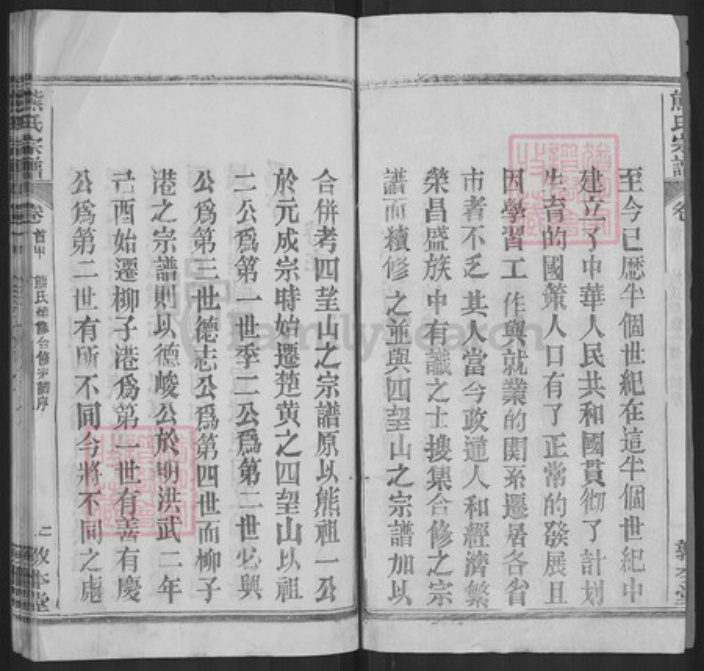 至今已歷半個世紀在這半個世紀中
建立了中華人民共和國貫彻了計划
生育的國策人口有了正常的發展且
因學習工作與就業的関系遷居各省
市者不乏其人當今政通人和經濟繁
榮昌盛族中有識之士搜集合修之宗
譜而續修之並與四望山之宗譜加以
合併考四望山之宗譜原以熊祖一公
於元成宗時始遷楚黄之四望山以祖
二公爲第一世季二公爲第二世必興
公爲第三世德志公爲第四世而柳子
港之宗譜則以德峻公於明洪武二年
己酉始遷柳子港爲第一世有善有慶
公爲第二世有所不同今將不同之處
熊氏宗譜
卷首甲
熊氏雄修合修宗譜序
二
敦本堂
熊氏宗譜
卷
FamilySearch